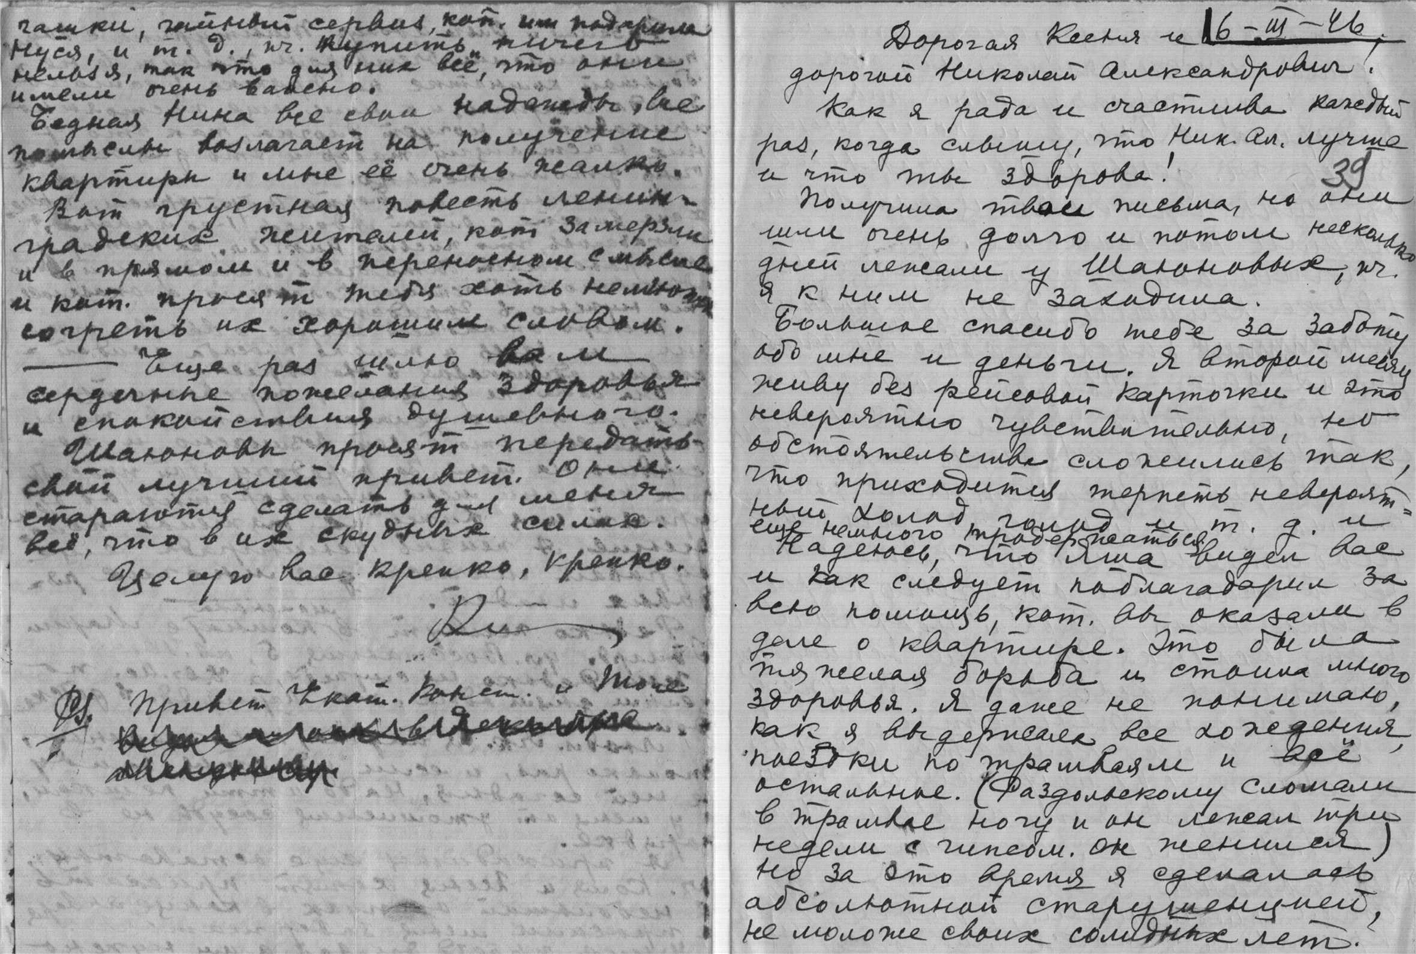 чашки, чайный сервиз, кот. им подарила
Нуся, и т. д., пч. купить ничего
нельзя, так что для них всё, что они
имели очень важно.
Бедная Нина все свои надежды, все
помыслы возлагает на получение
квартиры и мне её очень жалко.
Вот грустная повесть ленин-
градских жителей, кот. замерзли
и в прямом и в переносном смысле
и кот. просят тебя хоть немного
согреть их хорошим словом.
Еще раз шлю вам
сердечные пожелания здоровья
и спокойствия душевного.
Шапоновы просят передать
свой лучший привет. Они
стараются сделать для меня
всё, что в их скудных силах.
Целую вас крепко, крепко.
PS. Привет Екат. Конст. и Толе
16-III-46.
39
Дорогая Ксения и
дорогой Николай Александрович!
Как я рада и счастлива каждый
раз, когда слышу, что Ник. Ал. лучше
и что ты здорова!
Получила твои письма, но они
шли очень долго и потом несколько
дней лежали у Шапоновых, пч.
я к ним не заходила.
Большое спасибо тебе за заботу
обо мне и деньги. Я второй месяц
живу без рейсовой карточки и это
невероятно чувствительно, но
обстоятельства сложились так,
что приходится терпеть невероят-
ный холод, голод и т. д. и
еще немного продержаться
Надеюсь, что Яша видел вас
и как следует поблагодарил за
всю помощь, кот. вы оказали в
деле о квартире. Это была
тяжелая борьба и стоила много
здоровья. Я даже не понимаю,
как я выдержала все хождения,
поездки по трамваям и всё
остальное. (Раздольскому сломали
в трамвае ногу и он лежал три
недели с гипсом. Он женился)
но за это время я сделалась
абсолютной старушенцией,
не моложе своих солидных лет.